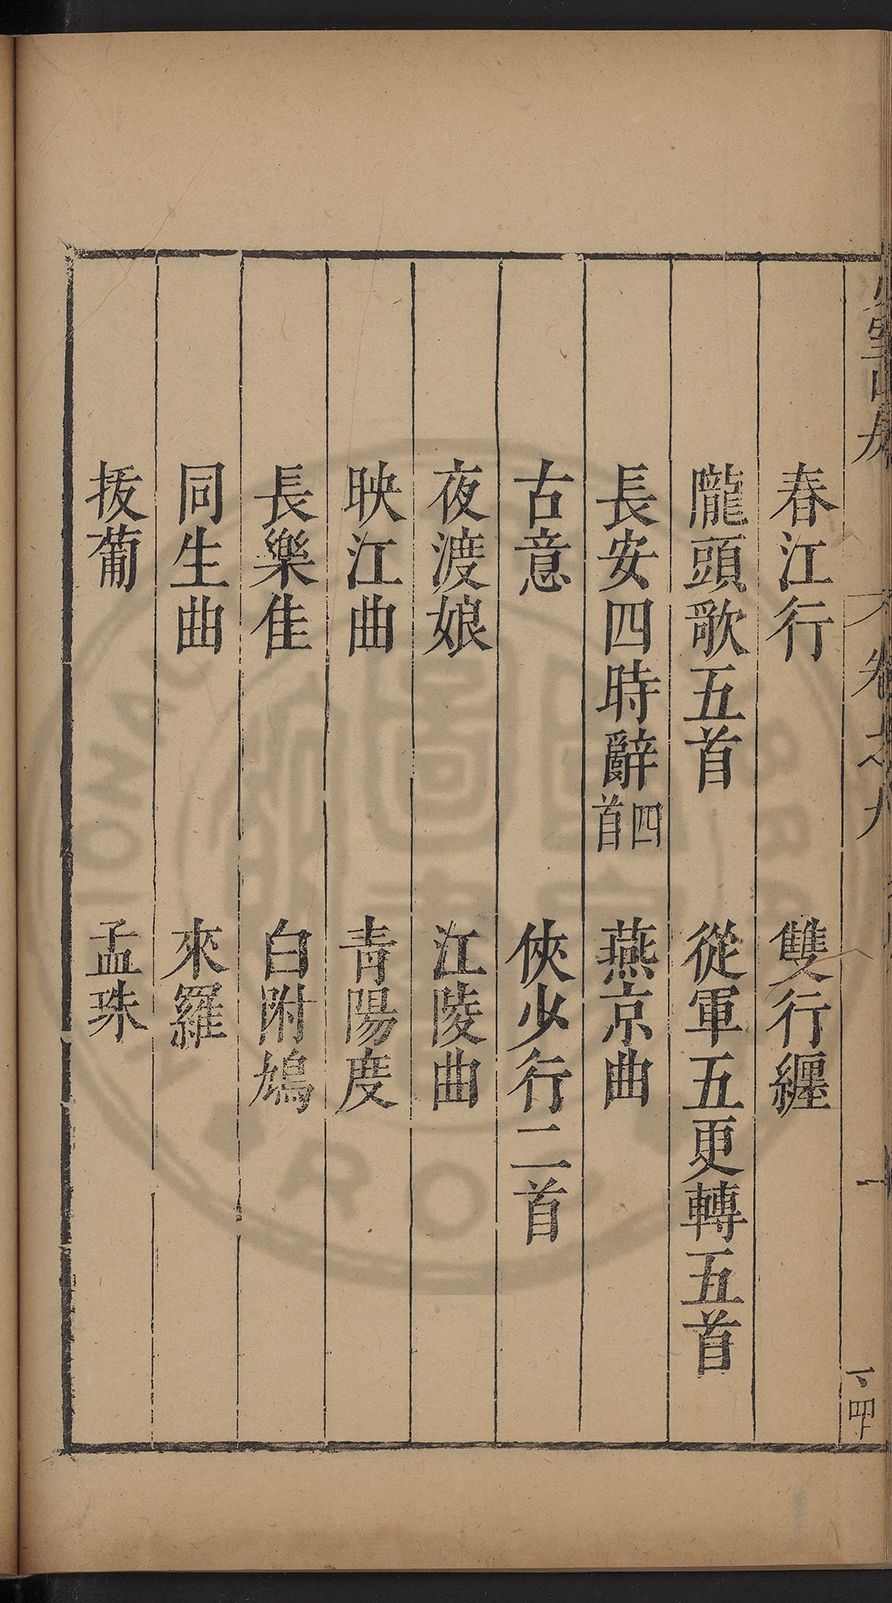 春江行　雙行纏
隴頭歌五首　從軍五更轉五首
長安四時辭四首　燕京曲
古意　俠少行二首
夜渡娘　江陵曲
映江曲　青陽度
長樂佳　白附鳩
同生曲　來羅
拔蒲　孟珠